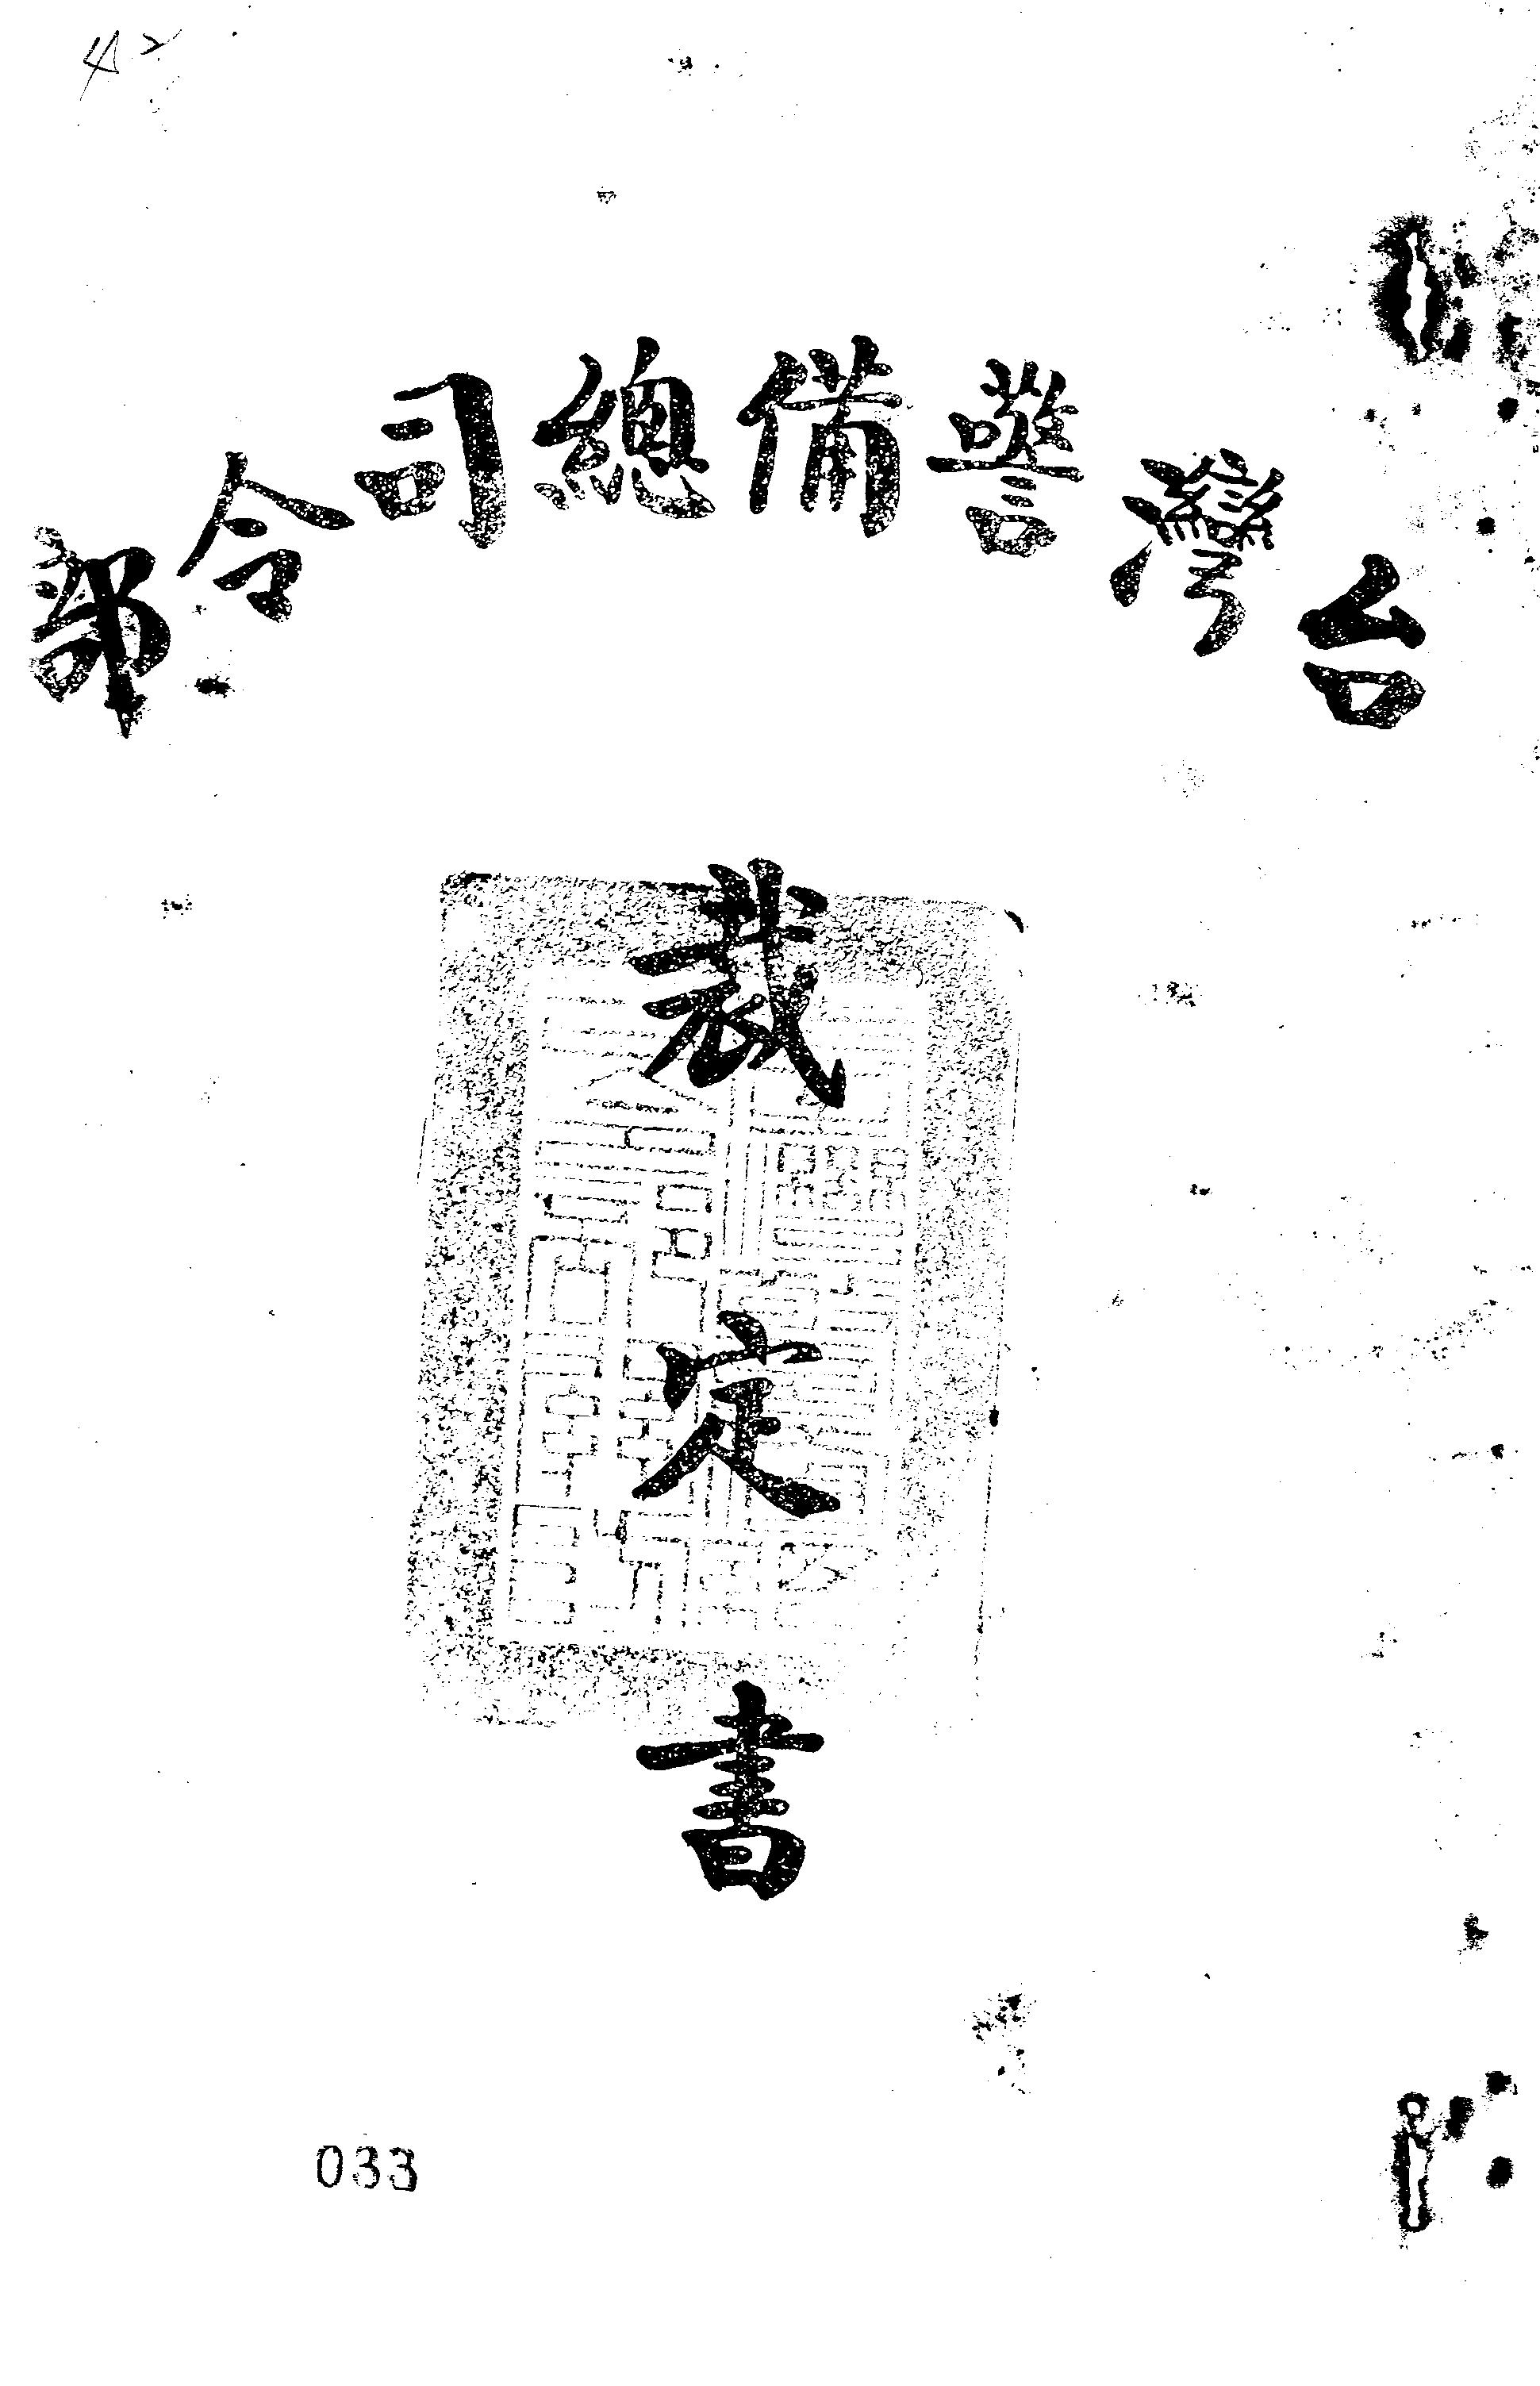 台灣警備總司令部
裁定書
033